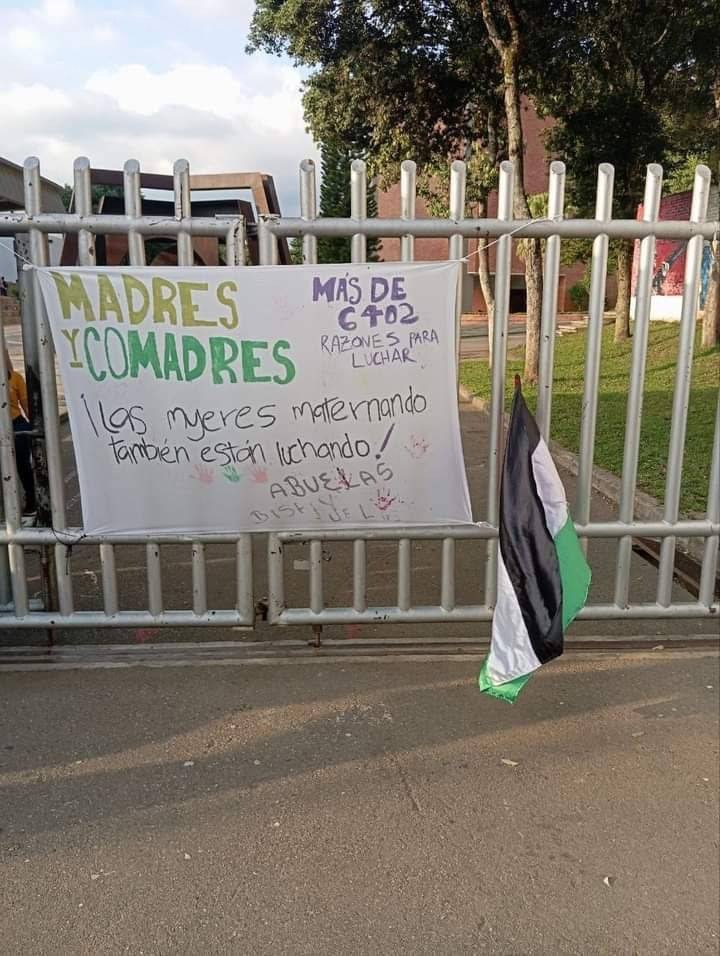 MADRES
Y COMADRES
MÁS DE
6402
RAZONES PARA
LUCHAR
¡Las mujeres maternando
también están luchando!
ABUELAS